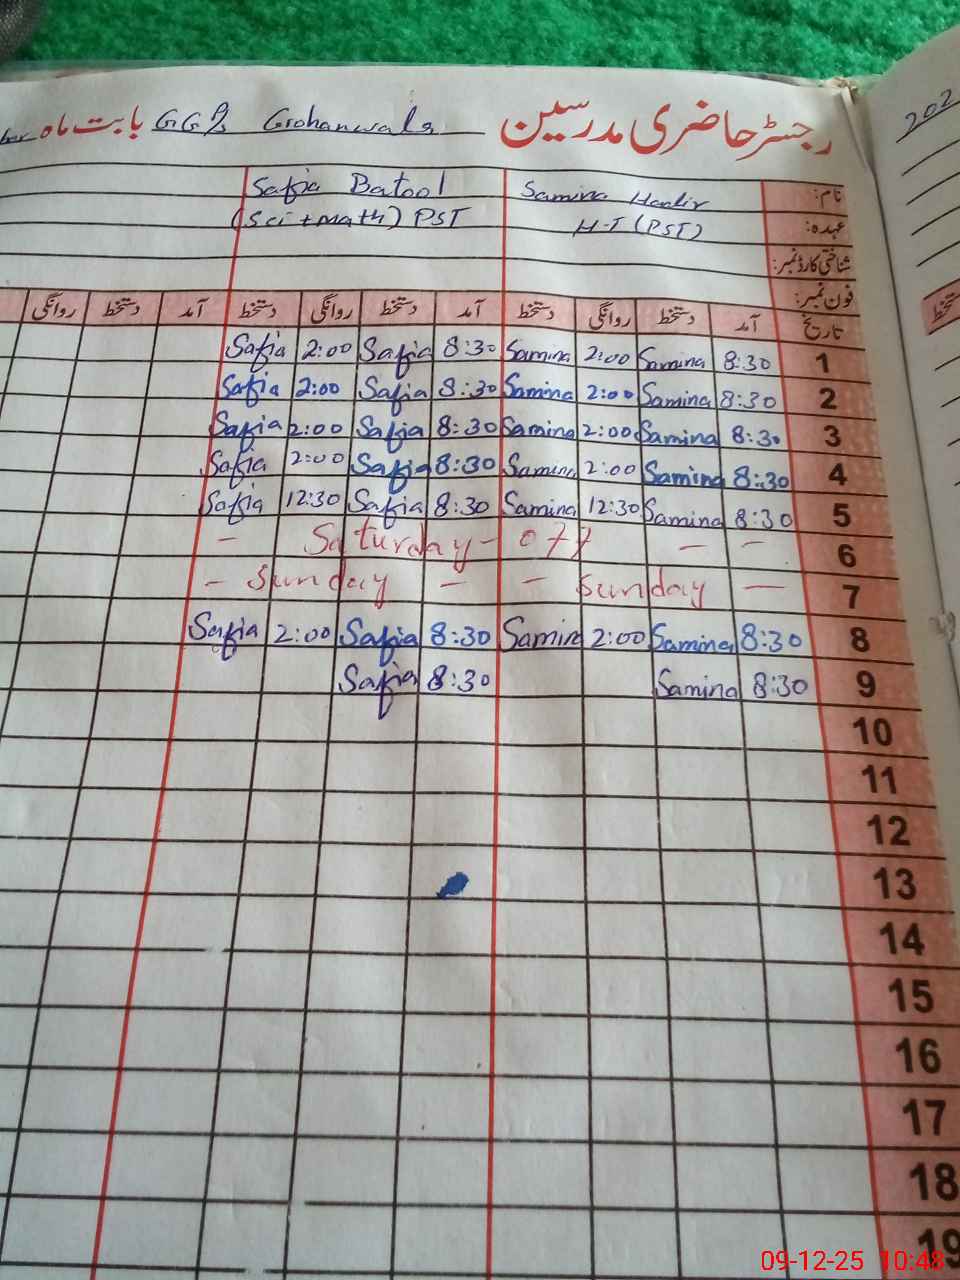 رجسٹر حاضری مدرسین GGPS Grohanwala بابت ماہ
202
نام: Samina Hadir Safia Batool
عہدہ: H-T (PST) (Sci + math) PST
شناختی کارڈ نمبر:
فون نمبر:
تاریخ آمد دستخط روانگی دستخط آمد دستخط روانگی دستخط آمد دستخط روانگی
1 8:30 Samina 2:00 Samina 8:30 Safia 2:00 Safia
2 8:30 Samina 2:00 Samina 8:30 Safia 2:00 Safia
3 8:30 Samina 2:00 Samina 8:30 Safia 2:00 Safia
4 8:30 Samina 2:00 Samina 8:30 Safia 2:00 Safia
5 8:30 Samina 12:30 Samina 8:30 Safia 12:30 Safia
6 - - Saturday - off -
7 - Sunday - - Sunday -
8 8:30 Samina 2:00 Samin 8:30 Safia 2:00 Safia
9 8:30 Samina 8:30 Safia
10
11
12
13
14
15
16
17
18
19
دستخط
09-12-25 10:48